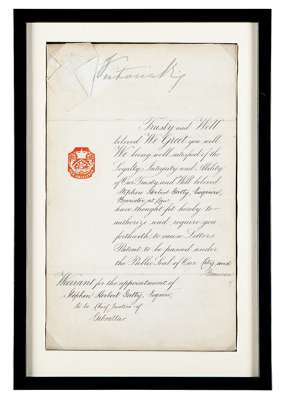 Trusty and Well
beloved We Greet you well.
We being well satisfied of the
Loyalty, Integrity and Ability
of Our Trusty and Well beloved
Stephen Herbert Gatty, Esquire,
Barrister at Law
have thought fit hereby to
authorize and require you
forthwith to cause Letters
Patent to be passed under
the Public Seal of Our City and
Warrant for the appointment of
Stephen Herbert Gatty, Esquire,
to be Chief Justice of
Gibraltar